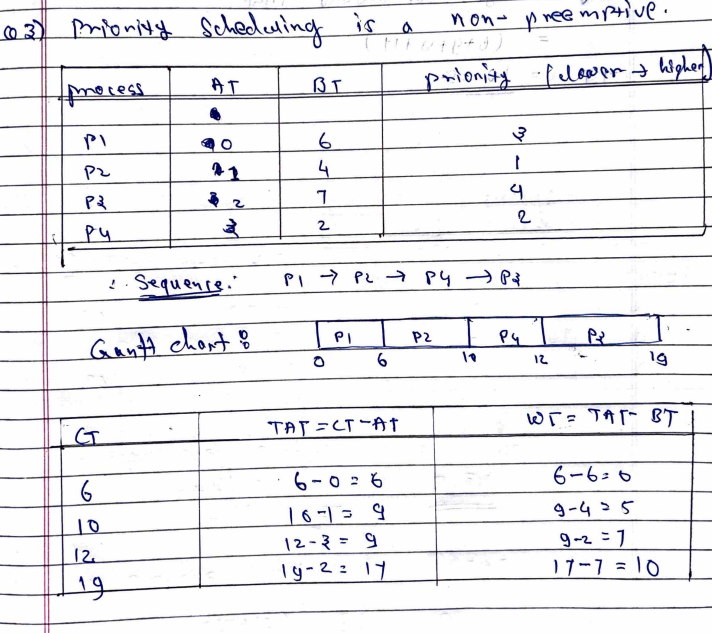 Q3) Priority Scheduling is a non-preemptive.
process AT BT priority (lower → higher)
P1 0 6 3
P2 1 4 1
P3 2 7 4
P4 3 2 2
∴ Sequence: P1 → P2 → P4 → P3
Gantt chart: P1 P2 P4 P3
0 6 10 12 19
CT TAT = CT - AT WT = TAT - BT
6 6-0 = 6 6-6 = 0
10 10-1 = 9 9-4 = 5
12 12-3 = 9 9-2 = 7
19 19-2 = 17 17-7 = 10